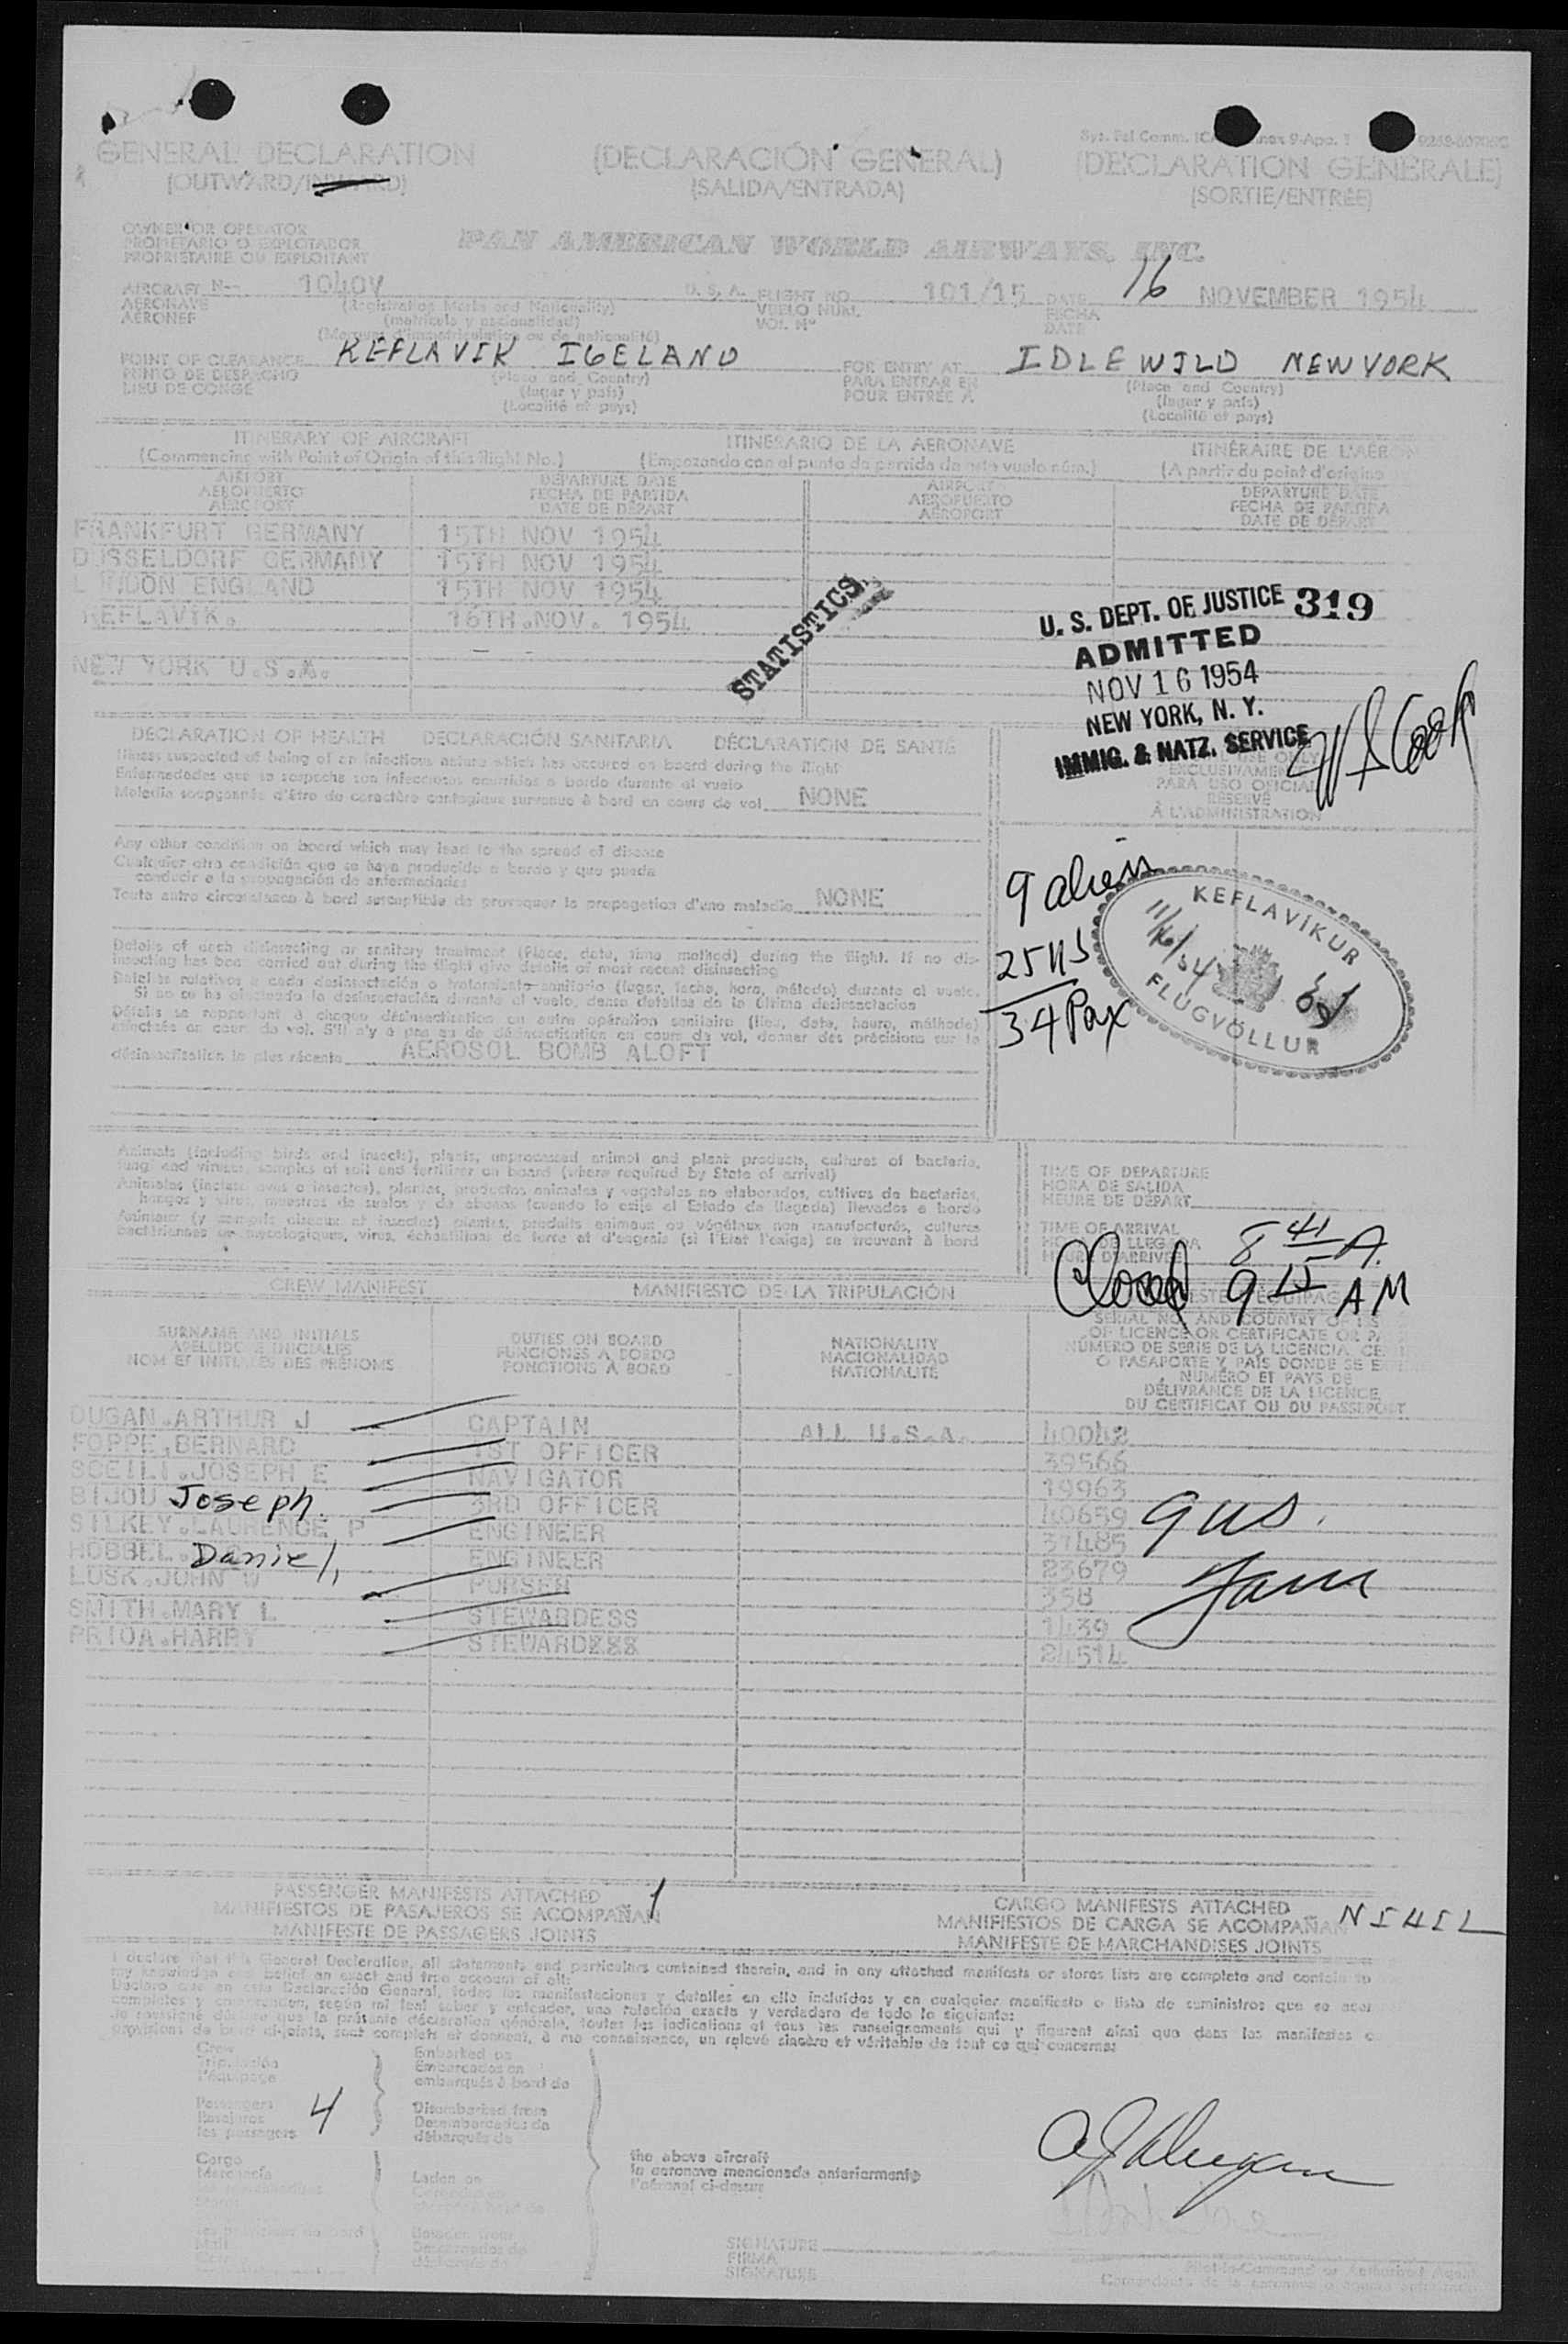 GENERAL DECLARATION (DECLARACIÓN GENERAL) (DECLARATION GENERALE)
(OUTWARD/INWARD) (SALIDA/ENTRADA) (SORTIE/ENTRÉE)
OWNER OR OPERATOR
PROPIETARIO O EXPLOTADOR
PROPRIETAIRE OU EXPLOITANT
PAN AMERICAN WORLD AIRWAYS, INC.
AIRCRAFT N-- 1040V U. S. A. FLIGHT NO. 101/15 DATE 16 NOVEMBER 1954
AERONAVE (Registration Marks and Nationality) VUELO NUM. FECHA
AERONEF (matricula y nacionalidad) VOL Nº DATE
(Marques d'immatriculation ou de nationalité)
POINT OF CLEARANCE KEFLAVIK ICELAND FOR ENTRY AT IDLEWILD NEW YORK
PUNTO DE DESPACHO (Place and Country) PARA ENTRAR EN (Place and Country)
LIEU DE CONGE (lugar y país) POUR ENTRÉE A (lugar y país)
(Localité et pays) (Localité et pays)
ITINERARY OF AIRCRAFT ITINERARIO DE LA AERONAVE ITINÉRAIRE DE L'AÉRON
(Commencing with Point of Origin of this flight No.) (Empezando con el punto de partida de este vuelo núm.) (A partir du point d'origine
AIRPORT DEPARTURE DATE AIRPORT DEPARTURE DATE
AEROPUERTO FECHA DE PARTIDA AEROPUERTO FECHA DE PARTIDA
AEROPORT DATE DE DÉPART AÉROPORT DATE DE DÉPART
FRANKFURT GERMANY 15TH NOV 1954
DUSSELDORF GERMANY 15TH NOV 1954
LONDON ENGLAND 15TH NOV 1954
KEFLAVIK. 16TH.NOV. 1954
NEW YORK U.S.A.
STATISTICS
U. S. DEPT. OF JUSTICE 319
ADMITTED
NOV 16 1954
NEW YORK, N. Y.
IMMIG. & NATZ. SERVICE
DECLARATION OF HEALTH DECLARACIÓN SANITARIA DÉCLARATION DE SANTÉ
Illness suspected of being of an infectious nature which has occured on board during the flight
Enfermedades que se sospeche son infecciosas ocurridas a bordo durante el vuelo
Maladie soupçonnée d'être de caractère contagieux survenue à bord en cours de vol NONE
USE ONLY
EXCLUSIVAMENTE
PARA USO OFICIAL
RESERVÉ
À L'ADMINISTRATION
Any other condition on board which may lead to the spread of disease
Cualquier otra condición que se haya producido a bordo y que pueda
conducir a la propagación de enfermedades
Toute autre circonstance à bord susceptible de provoquer la propagation d'une maladie NONE
9 aliens
25 US
34 Pax
KEFLAVÍKUR
11/16/54
FLUGVÖLLUR
Details of each disinsecting or sanitary treatment (Place, date, time method) during the flight. If no dis-
insecting has been carried out during the flight give details of most recent disinsecting
Detalles relativos a cada desinsectación o tratamiento sanitario (lugar, fecha, hora, método) durante el vuelo.
Si no se ha efectuado la desinsectación durante el vuelo, dense detalles de la última desinsectacion
Détails se rapportant à chaque désinsectisation ou autre opération sanitaire (lieu, date, heure, méthode)
effectués en cours de vol. S'il n'y a pas eu de désinsectisation en cours de vol, donner des précisions sur la
désinsectisation la plus récente AEROSOL BOMB ALOFT
Animals (including birds and insects), plants, unprocessed animal and plant products, cultures of bacteria,
fungi and viruses, samples of soil and fertilizer on board (where required by State of arrival)
Animales (incluso aves e insectos), plantas, productos animales y vegetales no elaborados, cultivos de bacterias,
hongos y virus, muestras de suelos y de abonos (cuando lo exija el Estado de llegada) llevados a bordo
Animaux (y compris oiseaux et insectes) plantes, produits animaux ou végétaux non manufacturés, cultures
bactériennes ou mycologiques, virus, échantillons de terre et d'engrais (si l'Etat l'exige) se trouvant à bord
TIME OF DEPARTURE
HORA DE SALIDA
HEURE DE DÉPART
TIME OF ARRIVAL
HORA DE LLEGADA
HEURE D'ARRIVÉE
8 41 A.
Closed 9 15 AM
CREW MANIFEST MANIFIESTO DE LA TRIPULACIÓN
SURNAME AND INITIALS DUTIES ON BOARD NATIONALITY
APELLIDO E INICIALES FUNCIONES A BORDO NACIONALIDAD
NOM ET INITIALES DES PRÉNOMS FONCTIONS À BORD NATIONALITÉ
SERIAL NO. AND COUNTRY OF ISS
OF LICENCE OR CERTIFICATE OR PA
NUMERO DE SERIE DE LA LICENCIA, CE
O PASAPORTE Y PAÍS DONDE SE E
NUMÉRO ET PAYS DE
DÉLIVRANCE DE LA LICENCE,
DU CERTIFICAT OU DU PASSEPORT
DUGAN.ARTHUR J CAPTAIN ALL U.S.A. 40042
FOPPE,BERNARD 1ST OFFICER 39566
SCEILI.JOSEPH E NAVIGATOR 19963
BIJOU Joseph 3RD OFFICER 40659
SILKEY.LAURENCE P ENGINEER 37485
HOBBEL. Daniel, ENGINEER 23679
LUSK.JOHN W PURSER 358
SMITH.MARY L STEWARDESS 1439
PRIOA.HARRY STEWARDXXX 24514
9 US.
PASSENGER MANIFESTS ATTACHED 1 CARGO MANIFESTS ATTACHED
MANIFIESTOS DE PASAJEROS SE ACOMPAÑAN MANIFIESTOS DE CARGA SE ACOMPAÑAN NIHIL
MANIFESTE DE PASSAGERS JOINTS MANIFESTE DE MARCHANDISES JOINTS
I declare that this General Declaration, all statements and particulars contained therein, and in any attached manifests or stores lists are complete and contain to
my knowledge and belief an exact and true account of all:
Declaro que en esta Declaración General, todas las manifestaciones y detalles en ella incluidos y en cualquier manifiesto o lista de suministros que se acom
completos y comprenden, según mi leal saber y entender, una relación exacta y verdadera de todo lo siguiente:
Je soussigné déclare que la présente déclaration générale, toutes les indications et tous les renseignements qui y figurent ainsi que dans les manifestes
provisions de bord ci-joints, sont complets et donnent, à ma connaissance, un relevé sincère et véritable de tout ce qui concerne:
Crew Embarked on
Tripulación Embarcados en
l'équipage embarqués à bord de
Passengers 4 Disembarked from
Pasajeros Desembarcados de
les passagers débarqués de
Cargo the above aircraft
Mercancía Laden on la aeronave mencionada anteriormente
l'aéronef ci-dessus
A J Dugan
SIGNATURE
FIRMA
SIGNATURE
Pilot-in-Command or Authorized Agent